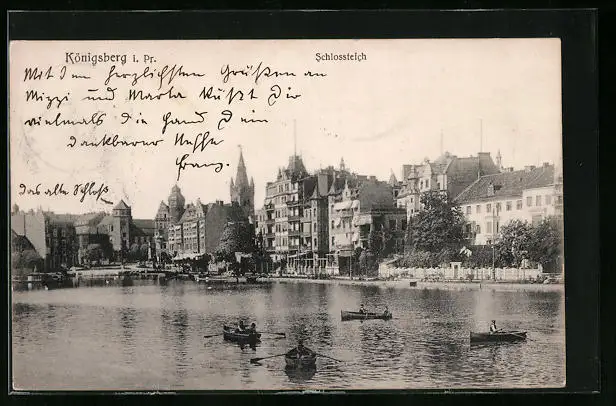 Königsberg i. Pr.
Schlossteich
Mit den herzlichsten Grüßen an
Mizzi und Marta küßt Dir
vielmals die Hand Dein
dankbarer Neffe
Franz.
das alte Schloß